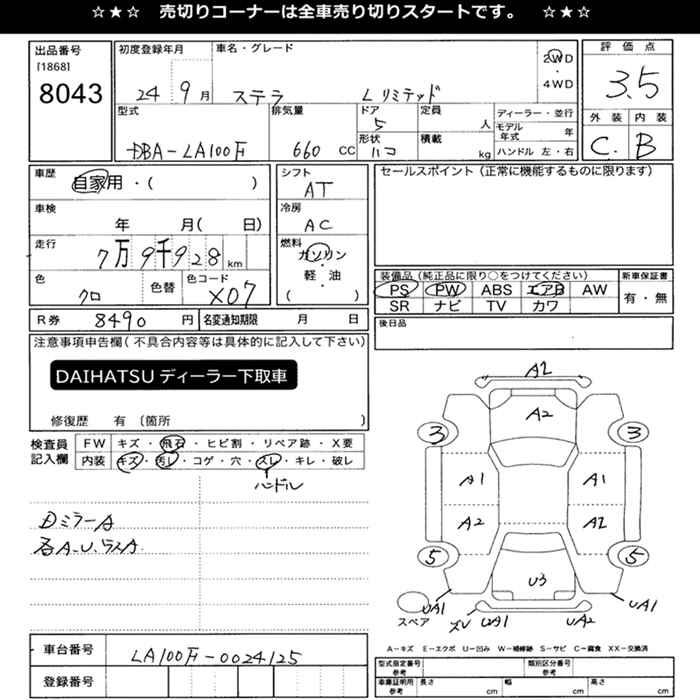 ☆★☆ 売切りコーナーは全車売り切りスタートです。 ☆★☆
出品番号
[1868]
8043
初度登録年月
24 9月
車名・グレード
ステラ Lリミテッド
2WD
・
4WD
評価点
3.5
外装 内装
C. B
型式
DBA-LA100F
排気量
660 CC
ドア
5
形状
ハコ
定員
人
積載
kg
ディーラー・並行
モデル年式 年
ハンドル 左・右
車歴
自家用・( )
車検
年 月( 日)
走行
7万9千928 km
色
クロ
色替
色コード
X07
シフト
AT
冷房
AC
燃料
ガソリン
・
軽・油
( )
セールスポイント(正常に機能するものに限ります)
装備品(純正品に限り○をつけてください)
PS PW ABS エアB AW
SR ナビ TV カワ
新車保証書
有・無
R券 8490 円
名変通知期限 月 日
後日品
注意事項申告欄(不具合内容等は具体的に記入して下さい)
DAIHATSU ディーラー下取車
修復歴 有 (箇所 )
検査員
記入欄
FW キズ・飛石・ヒビ割・リペア跡・X要
内装 キズ・汚レ・コゲ・穴・スレ・キレ・破レ
ハンドル
ミラーA
各A.U.
A2
A2
3 3
A1 A1
A2 A2
5 5
U3
UA1 UA1
スペア
UA2
A-キズ E-エクボ U-凹み W-補修跡 S-サビ C-腐食 XX-交換済
車台番号 LA100F-0024125
登録番号
型式指定番号
参考
類別区分番号
参考
車庫証明用
参考
長さ cm 幅 cm 高さ cm